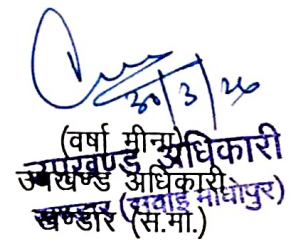 30/3/26
(वर्षा मीना)
उपखण्ड अधिकारी
उपखण्ड अधिकारी
खण्डार (सवाई माधोपुर)
खण्डार (स.मा.)